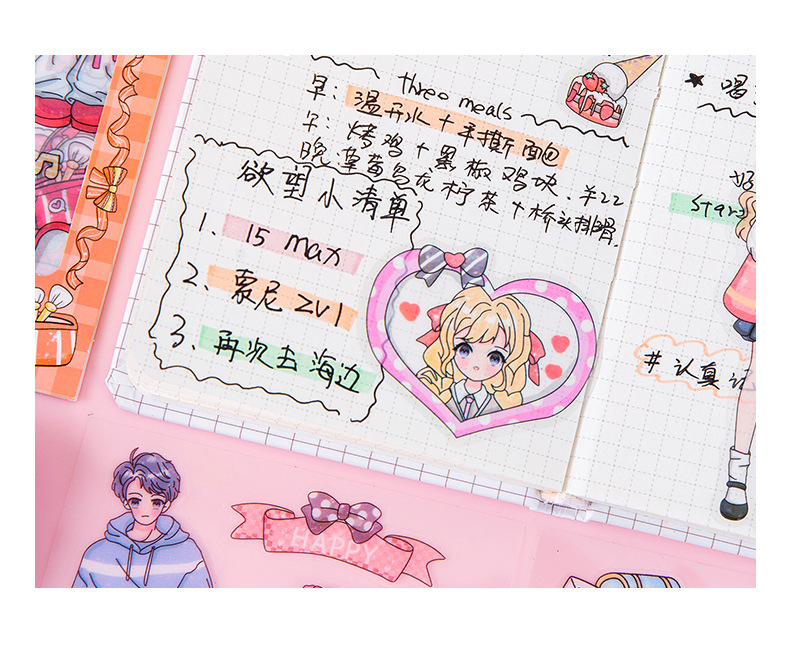 three meals
早：温开水+手撕面包
午：烤鸡+黑椒鸡块.￥22
晚 草莓乌龙柠茶+桥头排骨.
欲望小清单
1. 15 max
2. 索尼 ZV1
3. 再次去海边
★ 喝
好
star
#认真
HAPPY